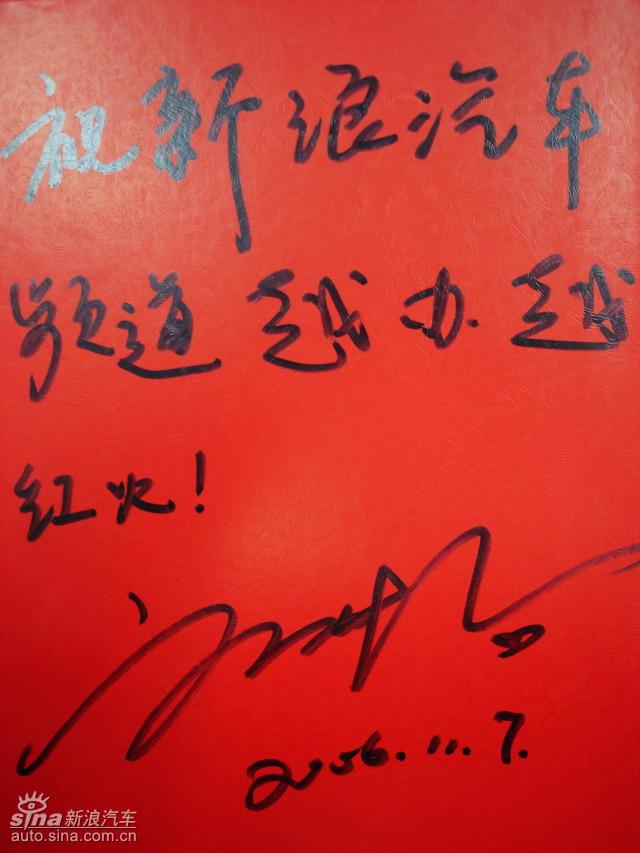 祝新浪汽车
频道越办越
红火!
2006.11.7.
sina新浪汽车
auto.sina.com.cn